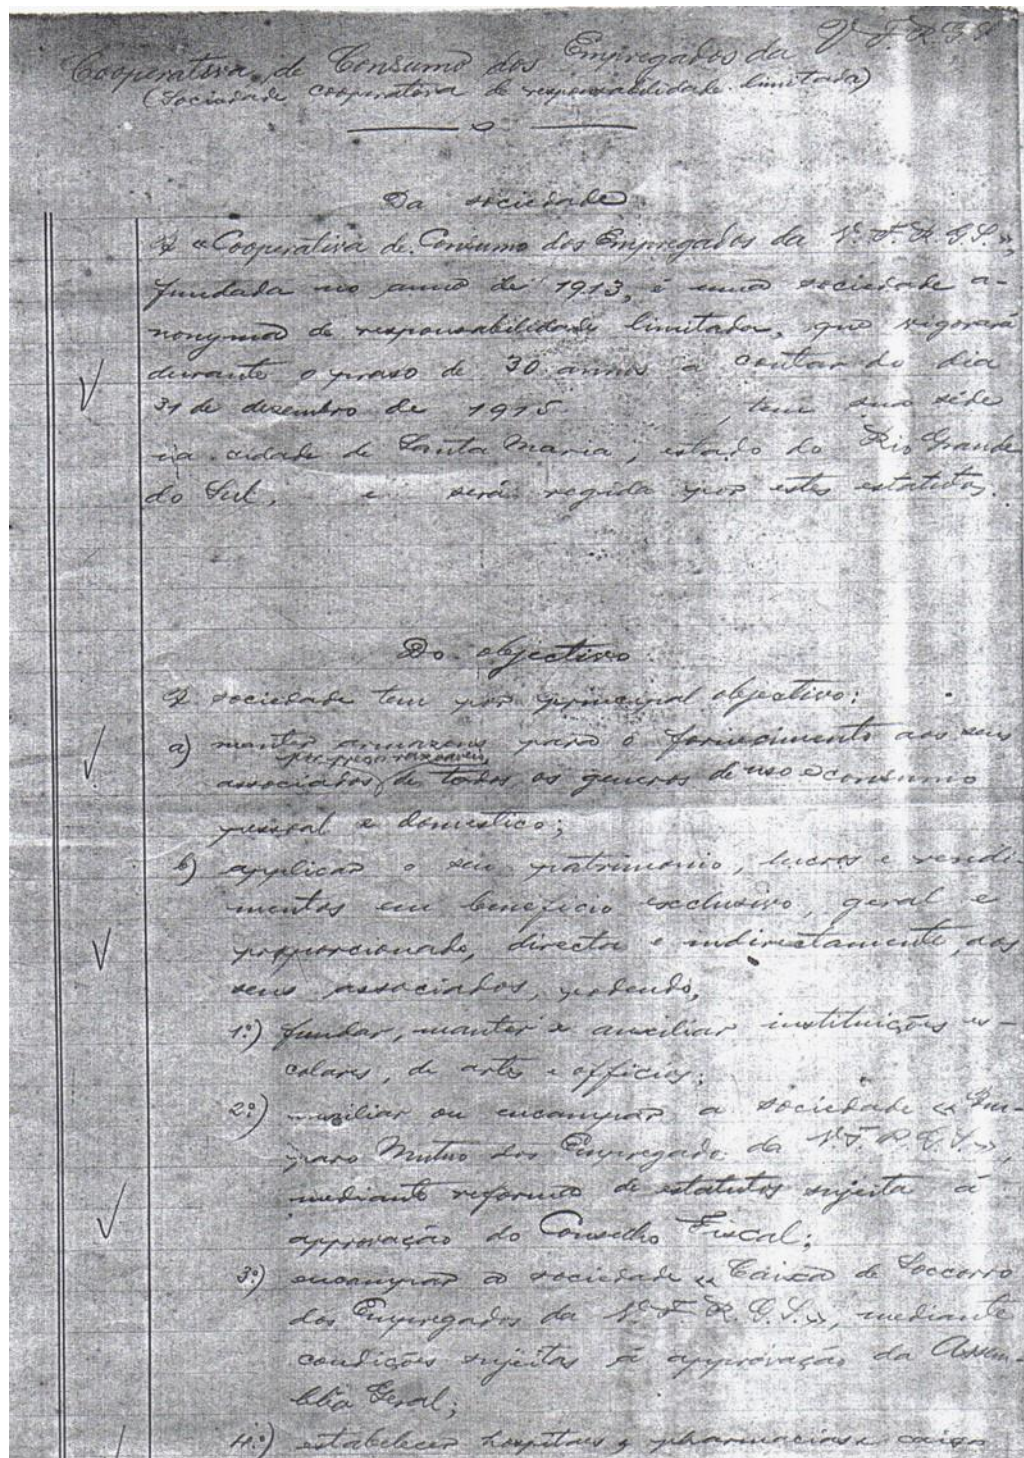 Cooperativa de Consumo dos Empregados da V. F. R. G. S.
(Sociedade cooperativa de responsabilidade limitada)
Da sociedade
A «Cooperativa de Consumo dos Empregados da V. F. R. G. S.»,
fundada no anno de 1913, é uma sociedade a-
nonyma de responsabilidade limitada, que vigorará
durante o praso de 30 annos a contar do dia
31 de dezembro de 1915 tem sua séde
na cidade de Santa Maria, estado do Rio Grande
do Sul, e será regida por estes estatutos.
Do objectivo
A sociedade tem por principal objectivo:
a) manter armazens para o fornecimento aos seus
por preços razoaveis
associados, de todos os generos de uso e consumo
pessoal e domestico;
b) applicar o seu patrimonio, lucros e rendi-
mentos em beneficio exclusivo, geral e
proporcionado, directa e indirectamente, aos
seus associados, podendo,
1º) fundar, manter e auxiliar instituições es-
colares, de artes e officios;
2º) auxiliar ou encampar a sociedade «Am-
paro Mutuo dos Empregados da V. F. R. G. S.»,
mediante reforma de estatutos sujeita á
approvação do Conselho Fiscal;
3º) encampar a sociedade «Caixa de Soccorro
dos Empregados da V. F. R. G. S.», mediante
condições sujeitas á approvação da Assem-
bléa Geral;
4º) estabelecer hospitaes, pharmacias e caixa